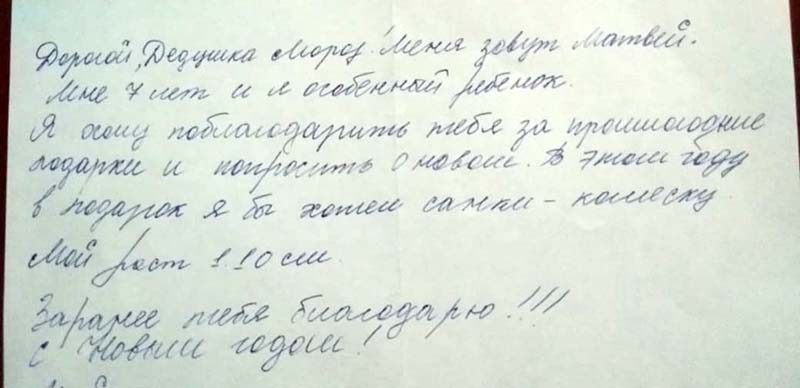 Дорогой, Дедушка Мороз! Меня зовут Матвей.
Мне 7 лет и я особенный ребенок.
Я хочу поблагодарить тебя за прошлогодние
подарки и попросить о новом. В этом году
в подарок я бы хотел санки - коляску
Мой рост 1.10 см.
Заранее тебя благодарю!!!
С Новым годом!